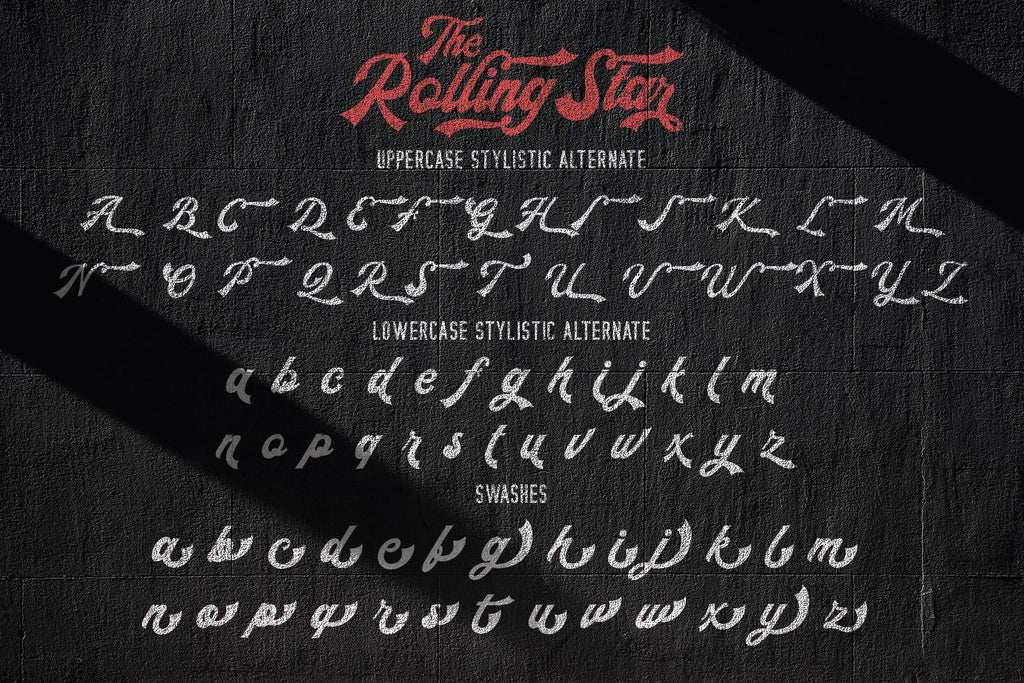 The
Rolling Star
UPPERCASE STYLISTIC ALTERNATE
A B C D E F G H I J K L M
N O P Q R S T U V W X Y Z
LOWERCASE STYLISTIC ALTERNATE
a b c d e f g h i j k l m
n o p q r s t u v w x y z
SWASHES
a b c d e f g h i j k l m
n o p q r s t u v w x y z